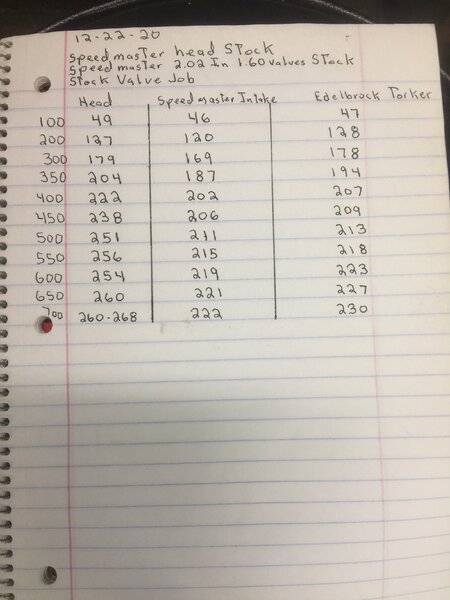 12-22-20
Speed master head Stock
Speed master 2.02 In 1.60 valves Stock
Stock Valve Job
Head Speed master Intake Edelbrock Torker
100 49 46 47
200 127 120 128
300 179 169 178
350 204 187 194
400 222 202 207
450 238 206 209
500 251 211 213
550 256 215 218
600 254 219 223
650 260 221 227
700 260-268 222 230